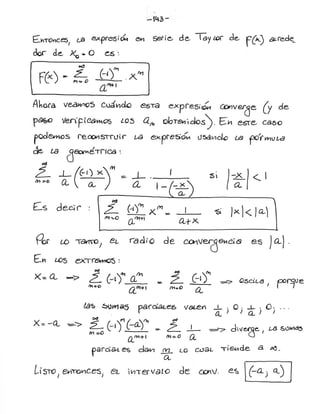 -143-
Entonces, la expresión en serie de Taylor de f(x) alrede
dor de x₀ = 0 es:
f(x) = ∑_{m=0}^{∞} (-1)^m / a^{m+1} x^m
Ahora veamos cuándo esta expresión converge (y de
paso verificamos los a_m obtenidos). En este caso
podemos reconstruir la expresión usando la fórmula
de la geométrica:
∑_{m=0}^{∞} 1/a ((-1) x / a)^m = 1/a · 1 / (1-(-x/a)) si |-x/a| < 1
Es decir: ∑_{m=0}^{∞} (-1)^m / a^{m+1} x^m = 1/(a+x) si |x|<|a|
Por lo tanto, el radio de convergencia es |a|.
En los extremos:
x = a => ∑_{m=0}^{∞} (-1)^m a^m / a^{m+1} = ∑_{m=0}^{∞} (-1)^m / a => oscila, porque
las sumas parciales valen 1/a, 0, 1/a, 0, ...
x = -a => ∑_{m=0}^{∞} (-1)^m (-a)^m / a^{m+1} = ∑_{m=0}^{∞} 1/a => diverge, la suma
parciales dan m/a lo cual tiende a ∞.
Listo, entonces, el intervalo de conv. es (-a, a)